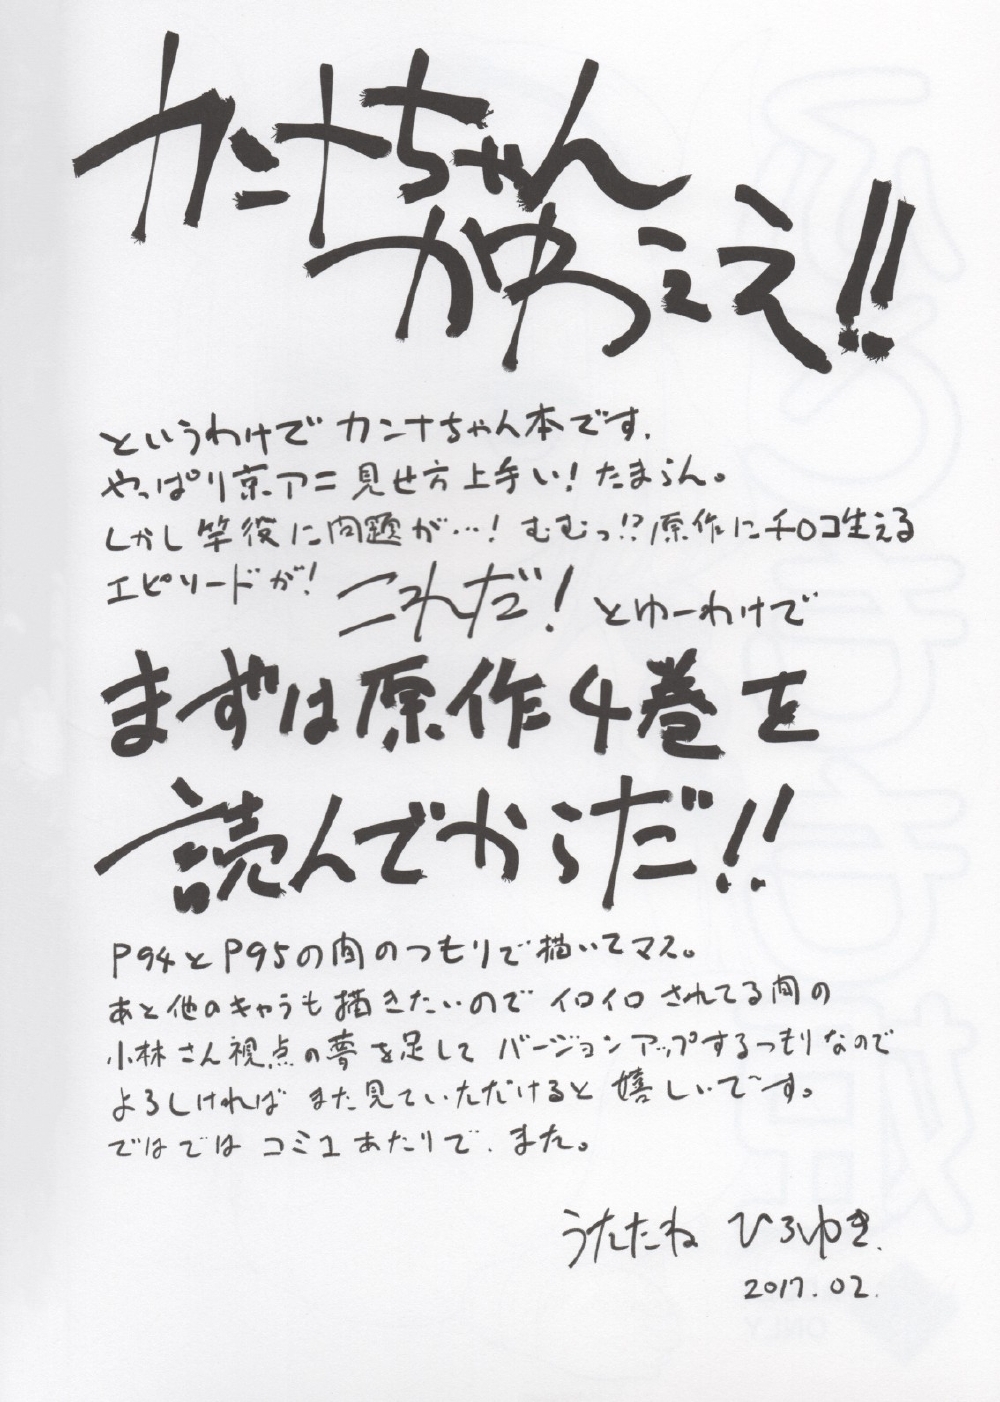 カンナちゃん
かゆっええ!!
というわけでカンナちゃん本です.
やっぱり京アニ見せ方上手い!たまらん。
しかし竿役に問題が…!むむっ!?原作にチ○コ生える
エピソードが! これだ! とゆーわけで
まずは原作4巻を
読んでからだ!!
P94とP95の間のつもりで描いてマス。
あと他のキャラも描きたいのでイロイロされてる間の
小林さん視点の夢を足してバージョンアップするつもりなので
よろしければまた見ていただけると嬉しいで〜す。
ではではコミ1あたりで.また。
うたたね ひろゆき.
2017.02.